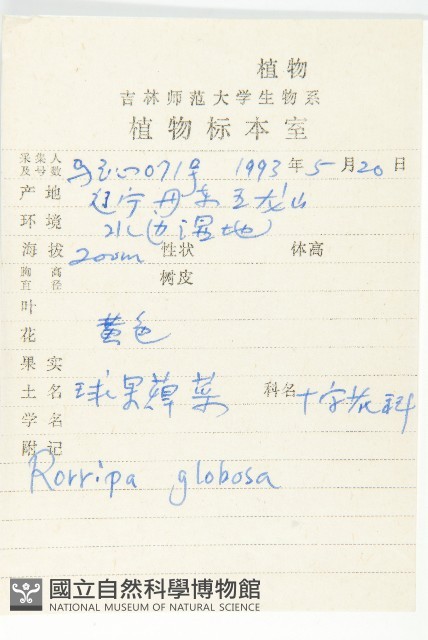 植物
吉林师范大学生物系
植物标本室
采集人及号数 071号 1993年5月20日
产地 辽宁丹东五龙山
环境 水边湿地
海拔 200m 性状 体高
胸高直径 树皮
叶
花 黄色
果实
土名 球果蔊菜 科名 十字花科
学名
附记
Rorripa globosa
國立自然科學博物館
NATIONAL MUSEUM OF NATURAL SCIENCE